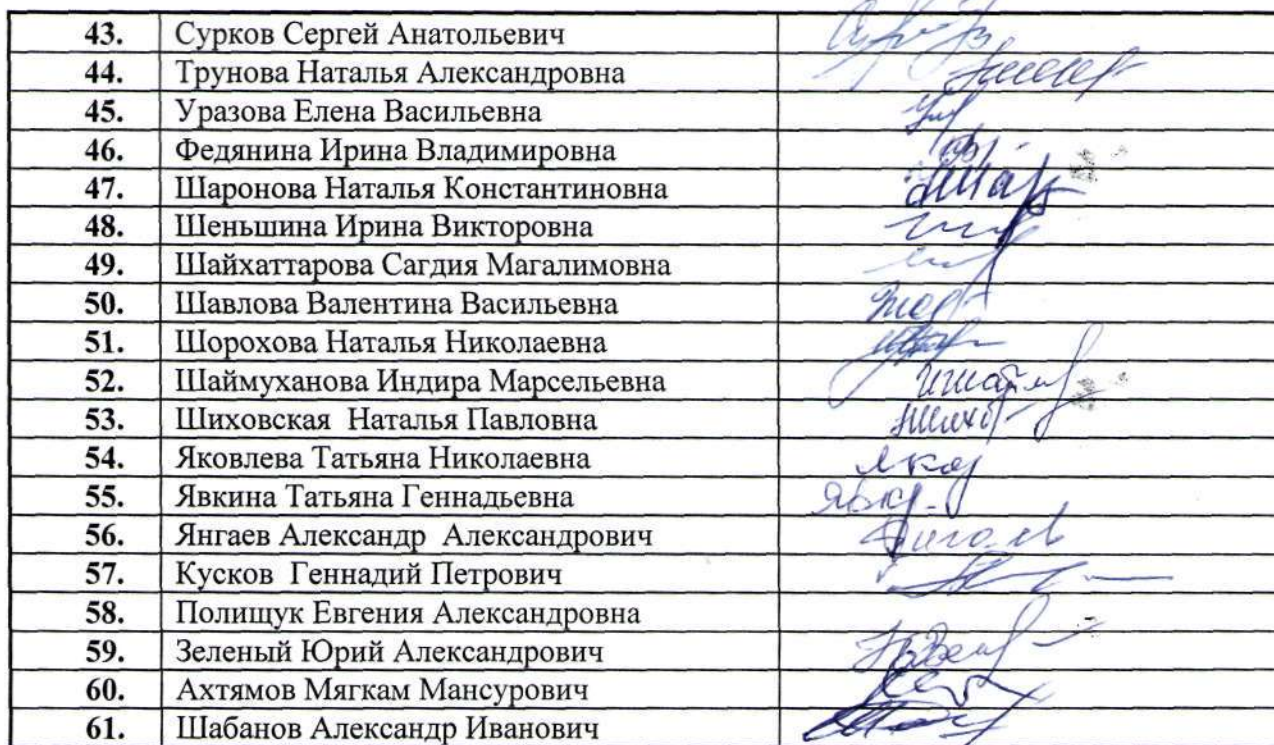 43. Сурков Сергей Анатольевич
44. Трунова Наталья Александровна
45. Уразова Елена Васильевна
46. Федянина Ирина Владимировна
47. Шаронова Наталья Константиновна
48. Шеньшина Ирина Викторовна
49. Шайхаттарова Сагдия Магалимовна
50. Шавлова Валентина Васильевна
51. Шорохова Наталья Николаевна
52. Шаймуханова Индира Марсельевна
53. Шиховская Наталья Павловна
54. Яковлева Татьяна Николаевна
55. Явкина Татьяна Геннадьевна
56. Янгаев Александр Александрович
57. Кусков Геннадий Петрович
58. Полищук Евгения Александровна
59. Зеленый Юрий Александрович
60. Ахтямов Мягкам Мансурович
61. Шабанов Александр Иванович